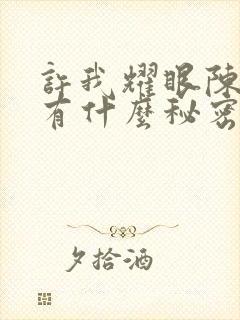 許我耀眼陳
有什麼秘密
夕拾酒